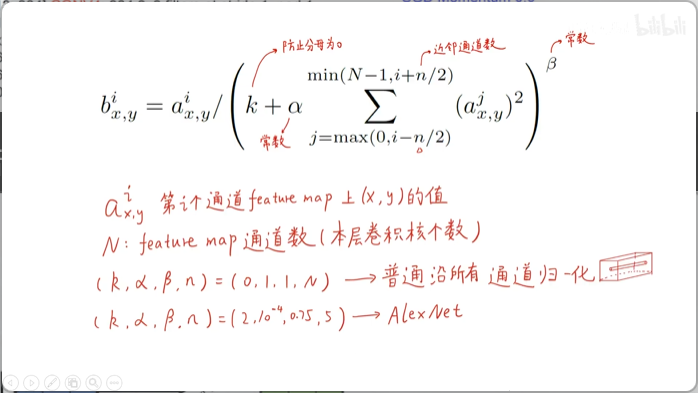 bilibili
防止分母为0
近邻通道数
常数
b^i_{x,y} = a^i_{x,y} / ( k + α ∑_{j=max(0,i−n/2)}^{min(N−1,i+n/2)} (a^j_{x,y})^2 )^β
常数
a^i_{x,y} 第i个通道feature map 上(x,y)的值
N: feature map 通道数(本层卷积核个数)
(k,α,β,n)=(0,1,1,N) → 普通沿所有通道归一化
(k,α,β,n)=(2,10^{-4},0.75,5) → AlexNet